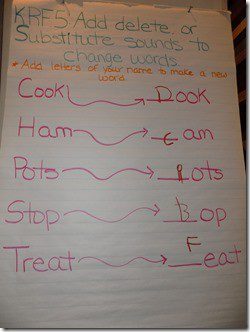 KRF5 Add delete, or
Substitute sounds to
change words.
* Add letters of your name to make a new
word
Cook Dook
Ham cam
Pots lots
Stop Bop
Treat Feat